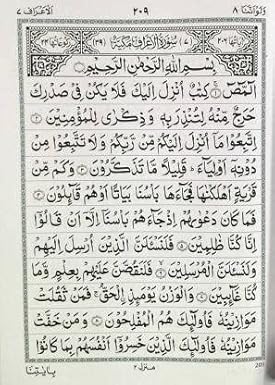 ولواننا ٨ ٢٠٩ الاعراف ٧
اٰیاتها ٢٠٦ (٧) سُوْرَةُ الْاَعْرَافِ مَكِّيَّةٌ (٣٩) رکوعاتها ٢٤
بِسْمِ اللّٰهِ الرَّحْمٰنِ الرَّحِيْمِ
الٓمّٓصٓ ۚ كِتٰبٌ اُنْزِلَ اِلَيْكَ فَلَا يَكُنْ فِيْ صَدْرِكَ
حَرَجٌ مِّنْهُ لِتُنْذِرَ بِهٖ وَ ذِكْرٰى لِلْمُؤْمِنِيْنَ ٢
اِتَّبِعُوْا مَآ اُنْزِلَ اِلَيْكُمْ مِّنْ رَّبِّكُمْ وَلَا تَتَّبِعُوْا مِنْ
دُوْنِهٖٓ اَوْلِيَآءَ ؕ قَلِيْلًا مَّا تَذَكَّرُوْنَ ٣ وَكَمْ مِّنْ
قَرْيَةٍ اَهْلَكْنٰهَا فَجَآءَهَا بَاْسُنَا بَيَاتًا اَوْ هُمْ قَآئِلُوْنَ ٤
فَمَا كَانَ دَعْوٰىهُمْ اِذْ جَآءَهُمْ بَاْسُنَآ اِلَّآ اَنْ قَالُوْٓا
اِنَّا كُنَّا ظٰلِمِيْنَ ٥ فَلَنَسْـَٔلَنَّ الَّذِيْنَ اُرْسِلَ اِلَيْهِمْ
وَلَنَسْـَٔلَنَّ الْمُرْسَلِيْنَ ٦ فَلَنَقُصَّنَّ عَلَيْهِمْ بِعِلْمٍ وَّمَا
كُنَّا غَآئِبِيْنَ ٧ وَالْوَزْنُ يَوْمَئِذِ ِ۟الْحَقُّ ۚ فَمَنْ ثَقُلَتْ
مَوَازِيْنُهٗ فَاُولٰٓئِكَ هُمُ الْمُفْلِحُوْنَ ٨ وَمَنْ خَفَّتْ
مَوَازِيْنُهٗ فَاُولٰٓئِكَ الَّذِيْنَ خَسِرُوْٓا اَنْفُسَهُمْ بِمَا كَانُوْا
منزل ٢ بِاٰيٰتِنَا
209